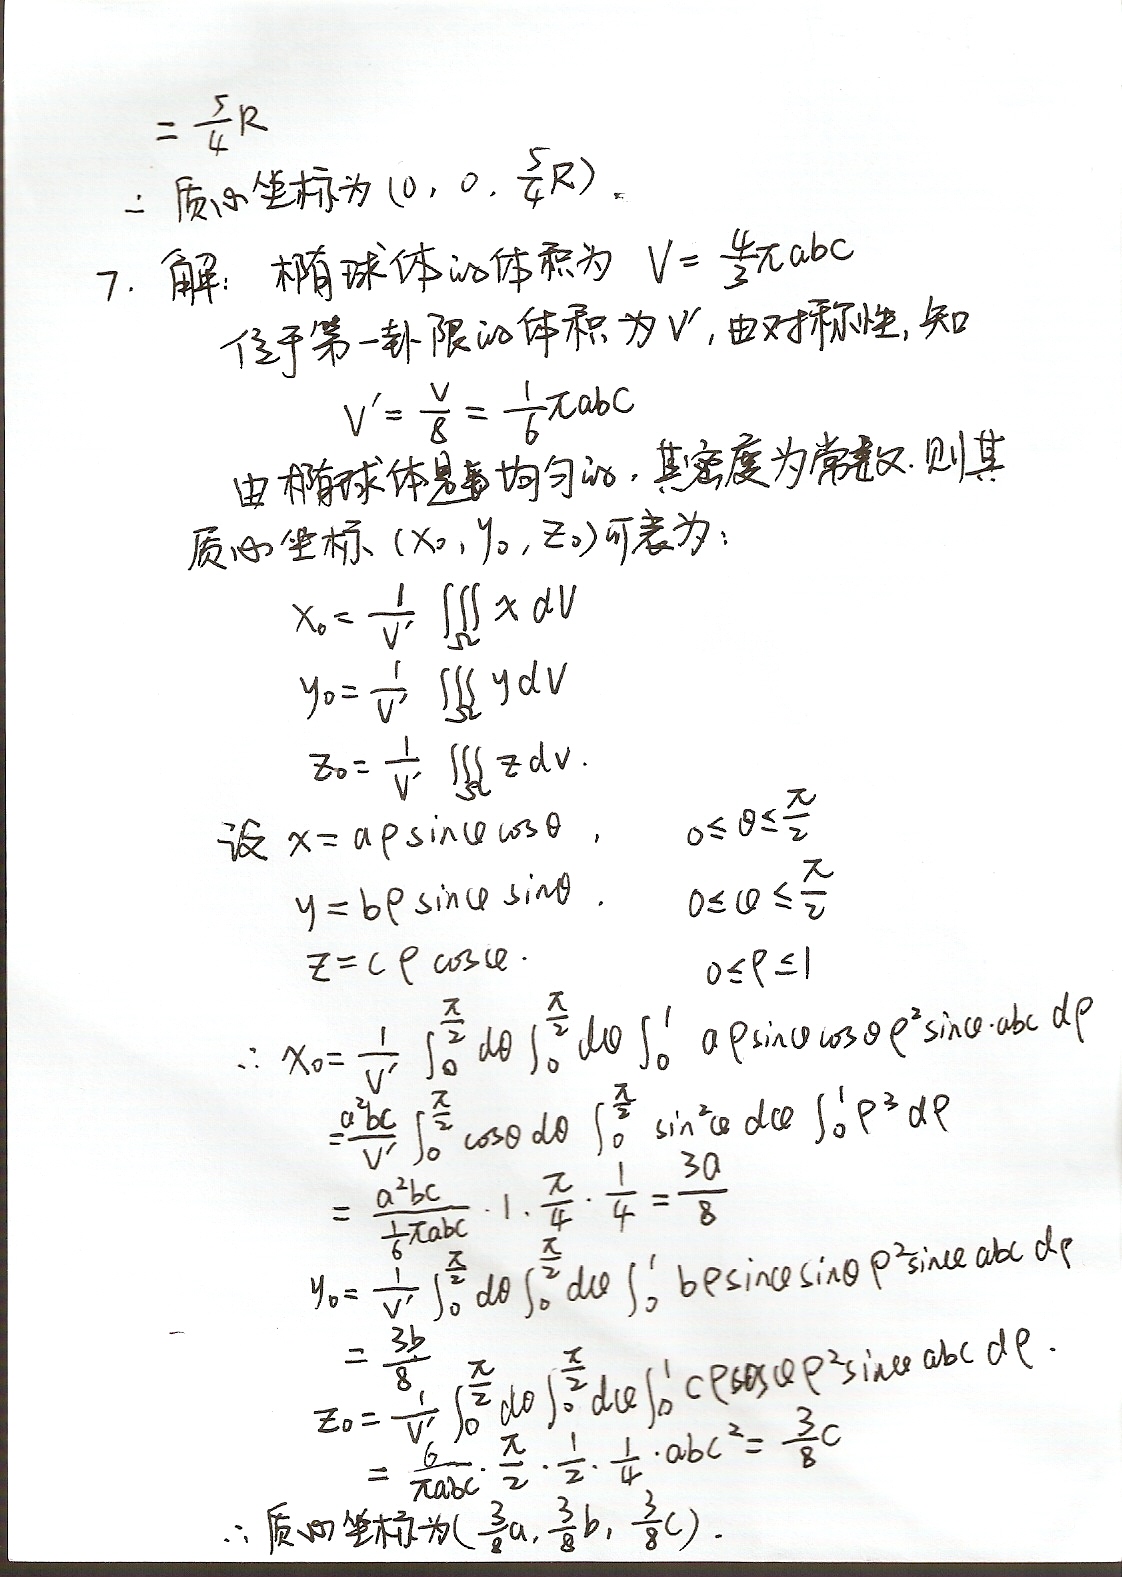 = 5/4 R
∴ 质心坐标为(0, 0, 5/4 R).
7. 解: 椭球体的体积为 V = 4/3 πabc
位于第一卦限的体积为V', 由对称性, 知
V' = V/8 = 1/6 πabc
由椭球体是均匀的, 其密度为常数. 则其
质心坐标 (x₀, y₀, z₀)可表为:
x₀ = 1/V' ∭_Ω x dV
y₀ = 1/V' ∭_Ω y dV
z₀ = 1/V' ∭_Ω z dv.
设 x = aρ sinφ cosθ, 0 ≤ θ ≤ π/2
y = bρ sinφ sinθ. 0 ≤ φ ≤ π/2
z = cρ cosφ. 0 ≤ ρ ≤ 1
∴ x₀ = 1/V' ∫₀^{π/2} dθ ∫₀^{π/2} dφ ∫₀¹ aρ sinφ cosθ ρ² sinφ·abc dρ
= a²bc/V' ∫₀^{π/2} cosθ dθ ∫₀^{π/2} sin²φ dφ ∫₀¹ ρ³ dρ
= a²bc/(1/6 πabc) · 1 · π/4 · 1/4 = 3a/8
y₀ = 1/V' ∫₀^{π/2} dθ ∫₀^{π/2} dφ ∫₀¹ bρ sinφ sinθ ρ² sinφ abc dρ
= 3b/8
z₀ = 1/V' ∫₀^{π/2} dθ ∫₀^{π/2} dφ ∫₀¹ cρ cosφ ρ² sinφ abc dρ.
= 6/πabc · π/2 · 1/2 · 1/4 · abc² = 3/8 c
∴ 质心坐标为(3/8 a, 3/8 b, 3/8 c).